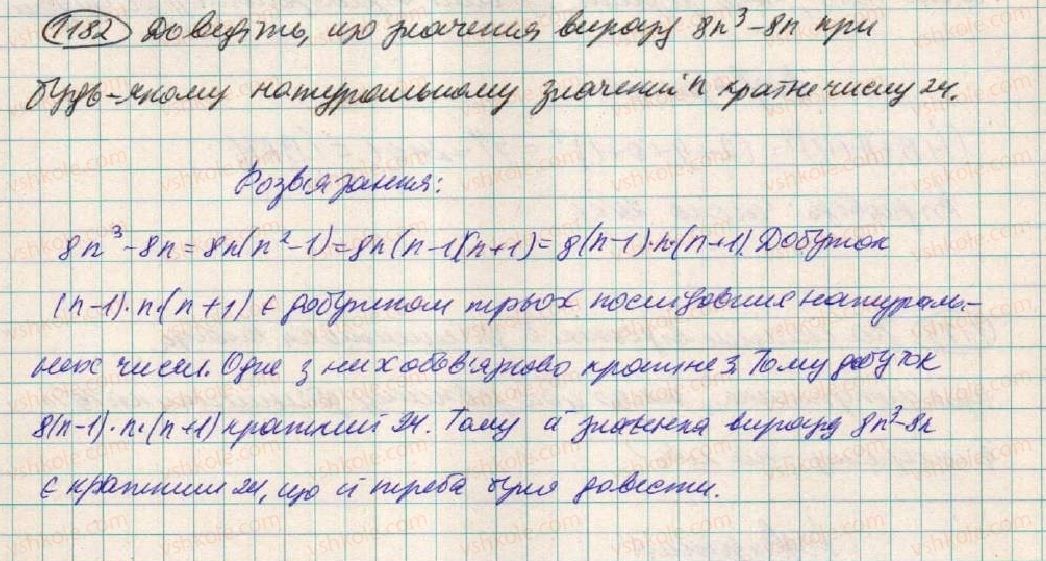 1182 Доведіть, що значення виразу 8n³-8n при
будь-якому натуральному значенні n кратне числу 24.
Розв'язання:
8n³-8n=8n(n²-1)=8n(n-1)(n+1)=8(n-1)·n·(n+1). Добуток
(n-1)·n·(n+1) є добутком трьох послідовних натураль-
них чисел. Одне з них обов'язково кратне 3. Тому добуток
8(n-1)·n·(n+1) кратний 24. Тому й значення виразу 8n³-8n
є кратним 24, що й треба було довести.